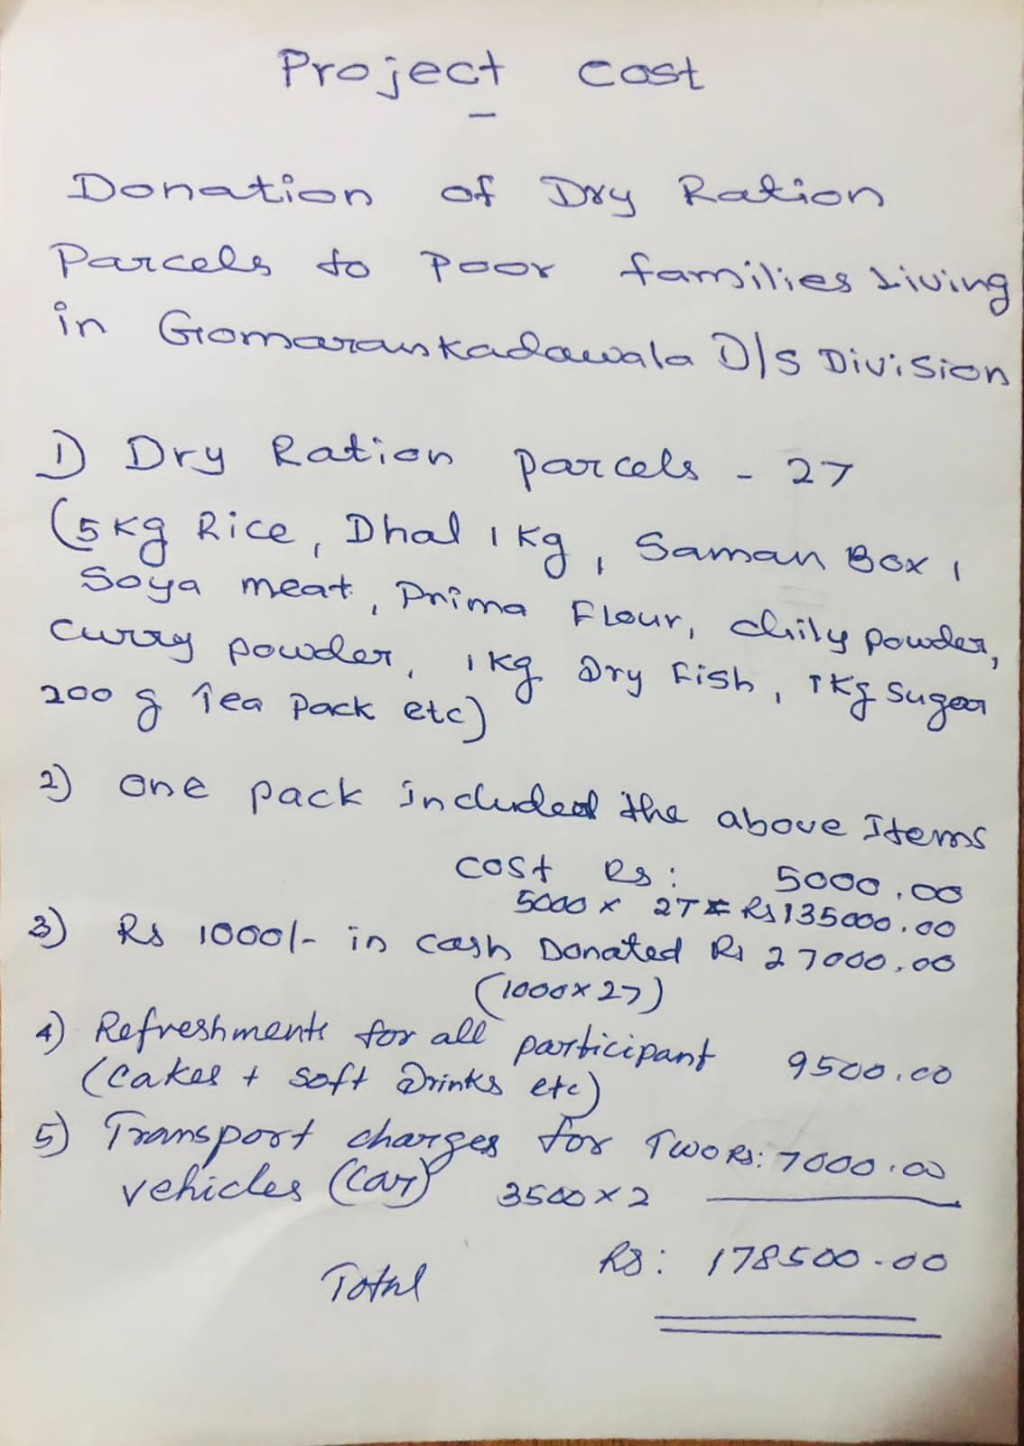 Project cost
Donation of Dry Ration
Parcels to Poor families Living
in Gomarankadawala D/S Division
1) Dry Ration parcels - 27
(5 Kg Rice, Dhal 1 Kg, Saman Box 1
Soya meat, Prima Flour, chily powder,
curry powder, 1 Kg Dry Fish, 1 Kg Sugar
200 g Tea Pack etc)
2) one pack included the above Items
cost Rs: 5000.00
5000 x 27 = Rs 135000.00
3) Rs 1000/- in cash Donated Rs 27000.00
(1000 x 27)
4) Refreshments for all participant 9500.00
(Cakes + Soft Drinks etc)
5) Transport charges for Two Rs: 7000.00
vehicles (Car) 3500 x 2
Total Rs: 178500.00